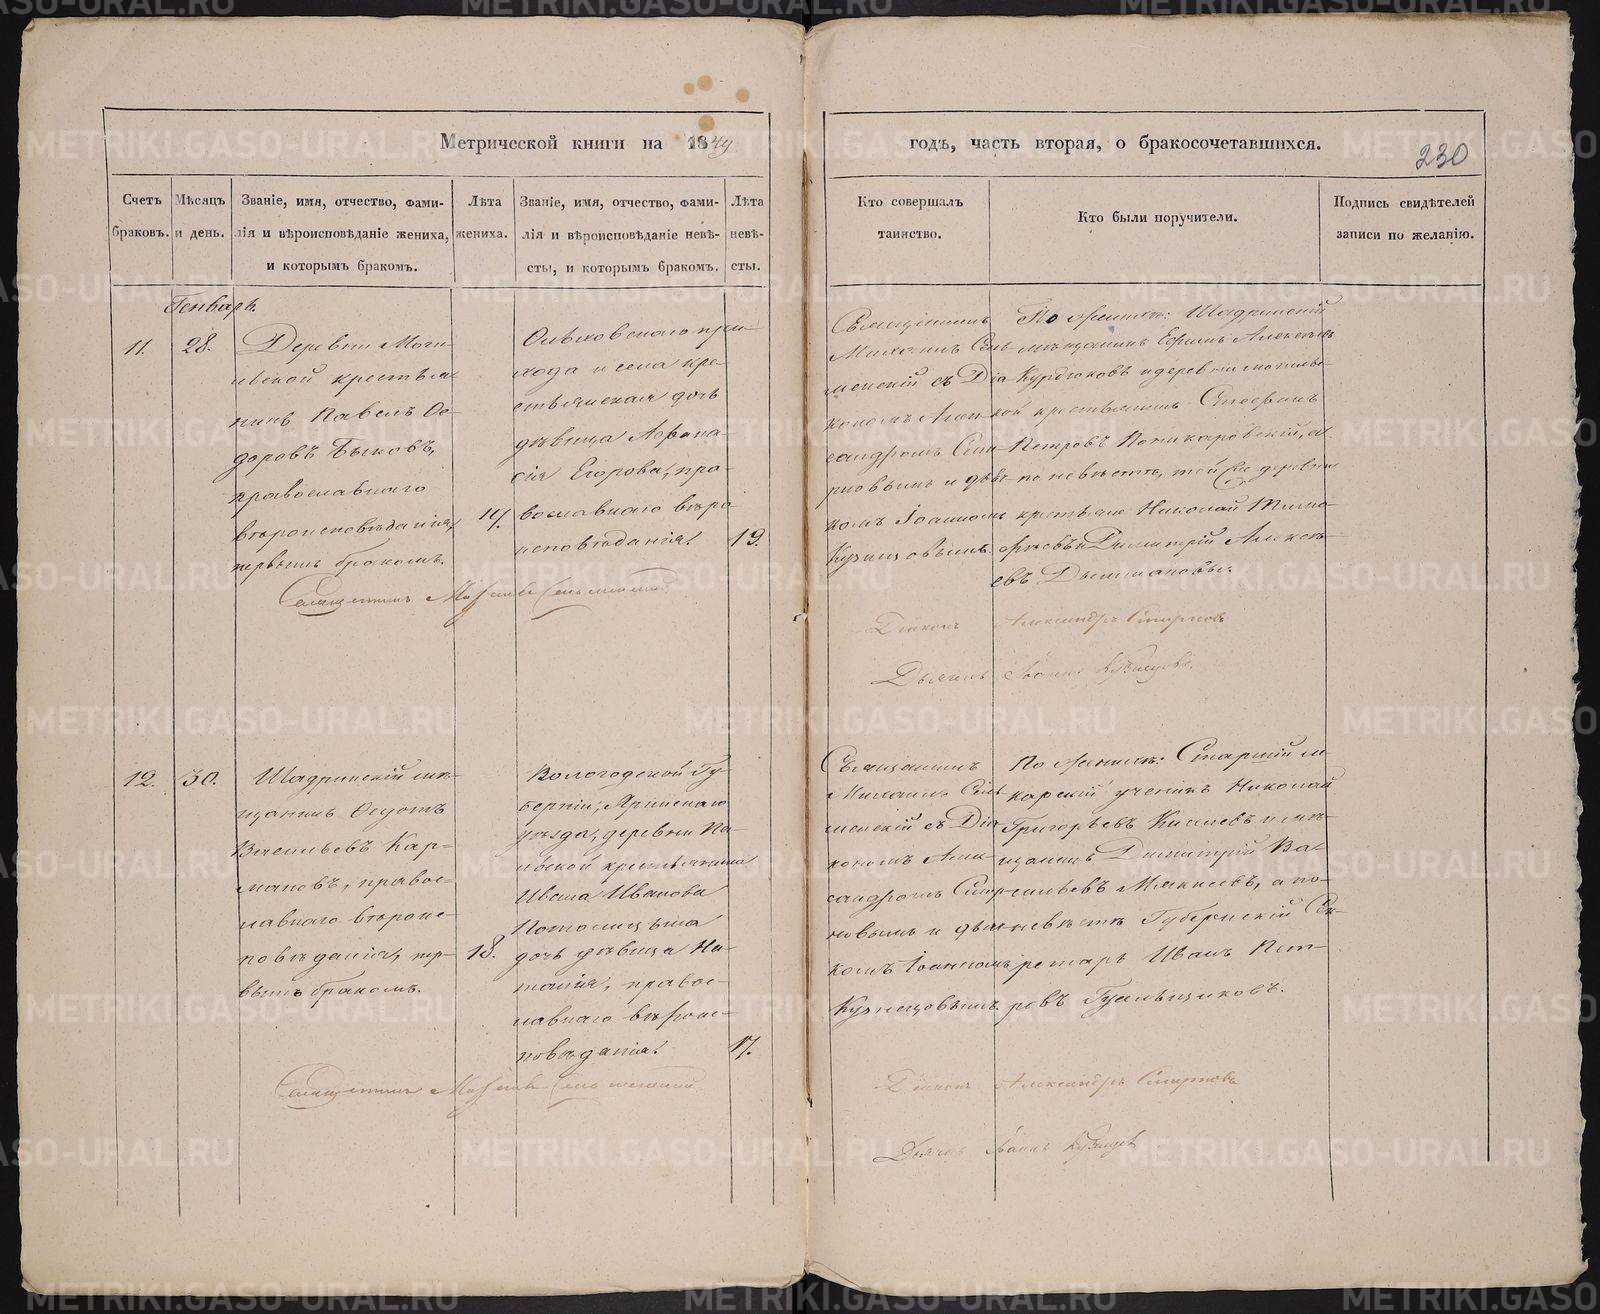 Метрической книги на 1849
годъ, часть вторая, о бракосочетавшихся.
230
Счетъ браковъ.
Мѣсяцъ и день.
Званіе, имя, отчество, фами-
лія и вѣроисповѣданіе жениха,
и которымъ бракомъ.
Лѣта
жениха.
Званіе, имя, отчество, фами-
лія и вѣроисповѣданіе невѣ-
сты, и которымъ бракомъ.
Лѣта
невѣ-
сты.
Кто совершалъ
таинство.
Кто были поручители.
Подпись свидѣтелей
записи по желанію.
Генварь.
11.
28.
Деревни Моги-
льской крестья-
нинъ Павелъ Ѳе-
доровъ Быковъ,
православнаго
вѣроисповѣданія,
первымъ бракомъ.
19.
Ольховскаго при-
хода и села кре-
стьянская дочь
дѣвица Афана-
сія Егорова, пра-
вославнаго вѣро
исповѣданія.
19.
Священникъ
Михаилъ Селъ
менскій съ Діа-
кономъ Алек-
сандромъ Смир-
новымъ и дьяч-
комъ Іоанномъ
Кузнецовымъ.
По женихѣ: Шадринскій
мѣщанинъ Ефимъ Алексѣевъ
Курдюковъ и деревни могильс-
кой крестьянинъ Стефанъ
Петровъ Поликаровскій, а
по невѣстѣ, той же деревни
крестьяне Николай Тимо-
фѣевъ и Димитрій Алексѣ-
евъ
Священникъ Михаилъ
Діаконъ Александръ Смирновъ
Дьячекъ Іоаннъ Кузнецовъ
12.
30.
Шадринскій мѣ-
щанинъ Ѳедотъ
Васильевъ Кар-
мановъ, правос-
лавнаго вѣроис-
повѣданія, пер-
вымъ бракомъ.
18.
Вологодской Гу-
берніи, Яринскаго
уѣзда, деревни Па-
льской крестьянина
Ивана Иванова
дочь дѣвица На-
талія, правос-
лавнаго вѣроис-
повѣданія.
17.
Священникъ
Михаилъ Селъ
менскій съ Діа
кономъ Алек-
сандромъ Смир-
новымъ и дьяч-
комъ Іоанномъ
Кузнецовымъ.
По женихѣ: Старшій ле-
карскій ученикъ Николай
Григорьевъ Киселевъ и мѣ-
щанинъ Димитрій Ва-
сильевъ Мякишевъ, а по
невѣстѣ Губернскій Сек-
ретарь Иванъ Пет-
ровъ Гуальщиковъ.
Священникъ Михаилъ
Діаконъ Александръ Смирновъ
Дьячекъ Іоаннъ Кузнецовъ
METRIKI.GASO-URAL.RU